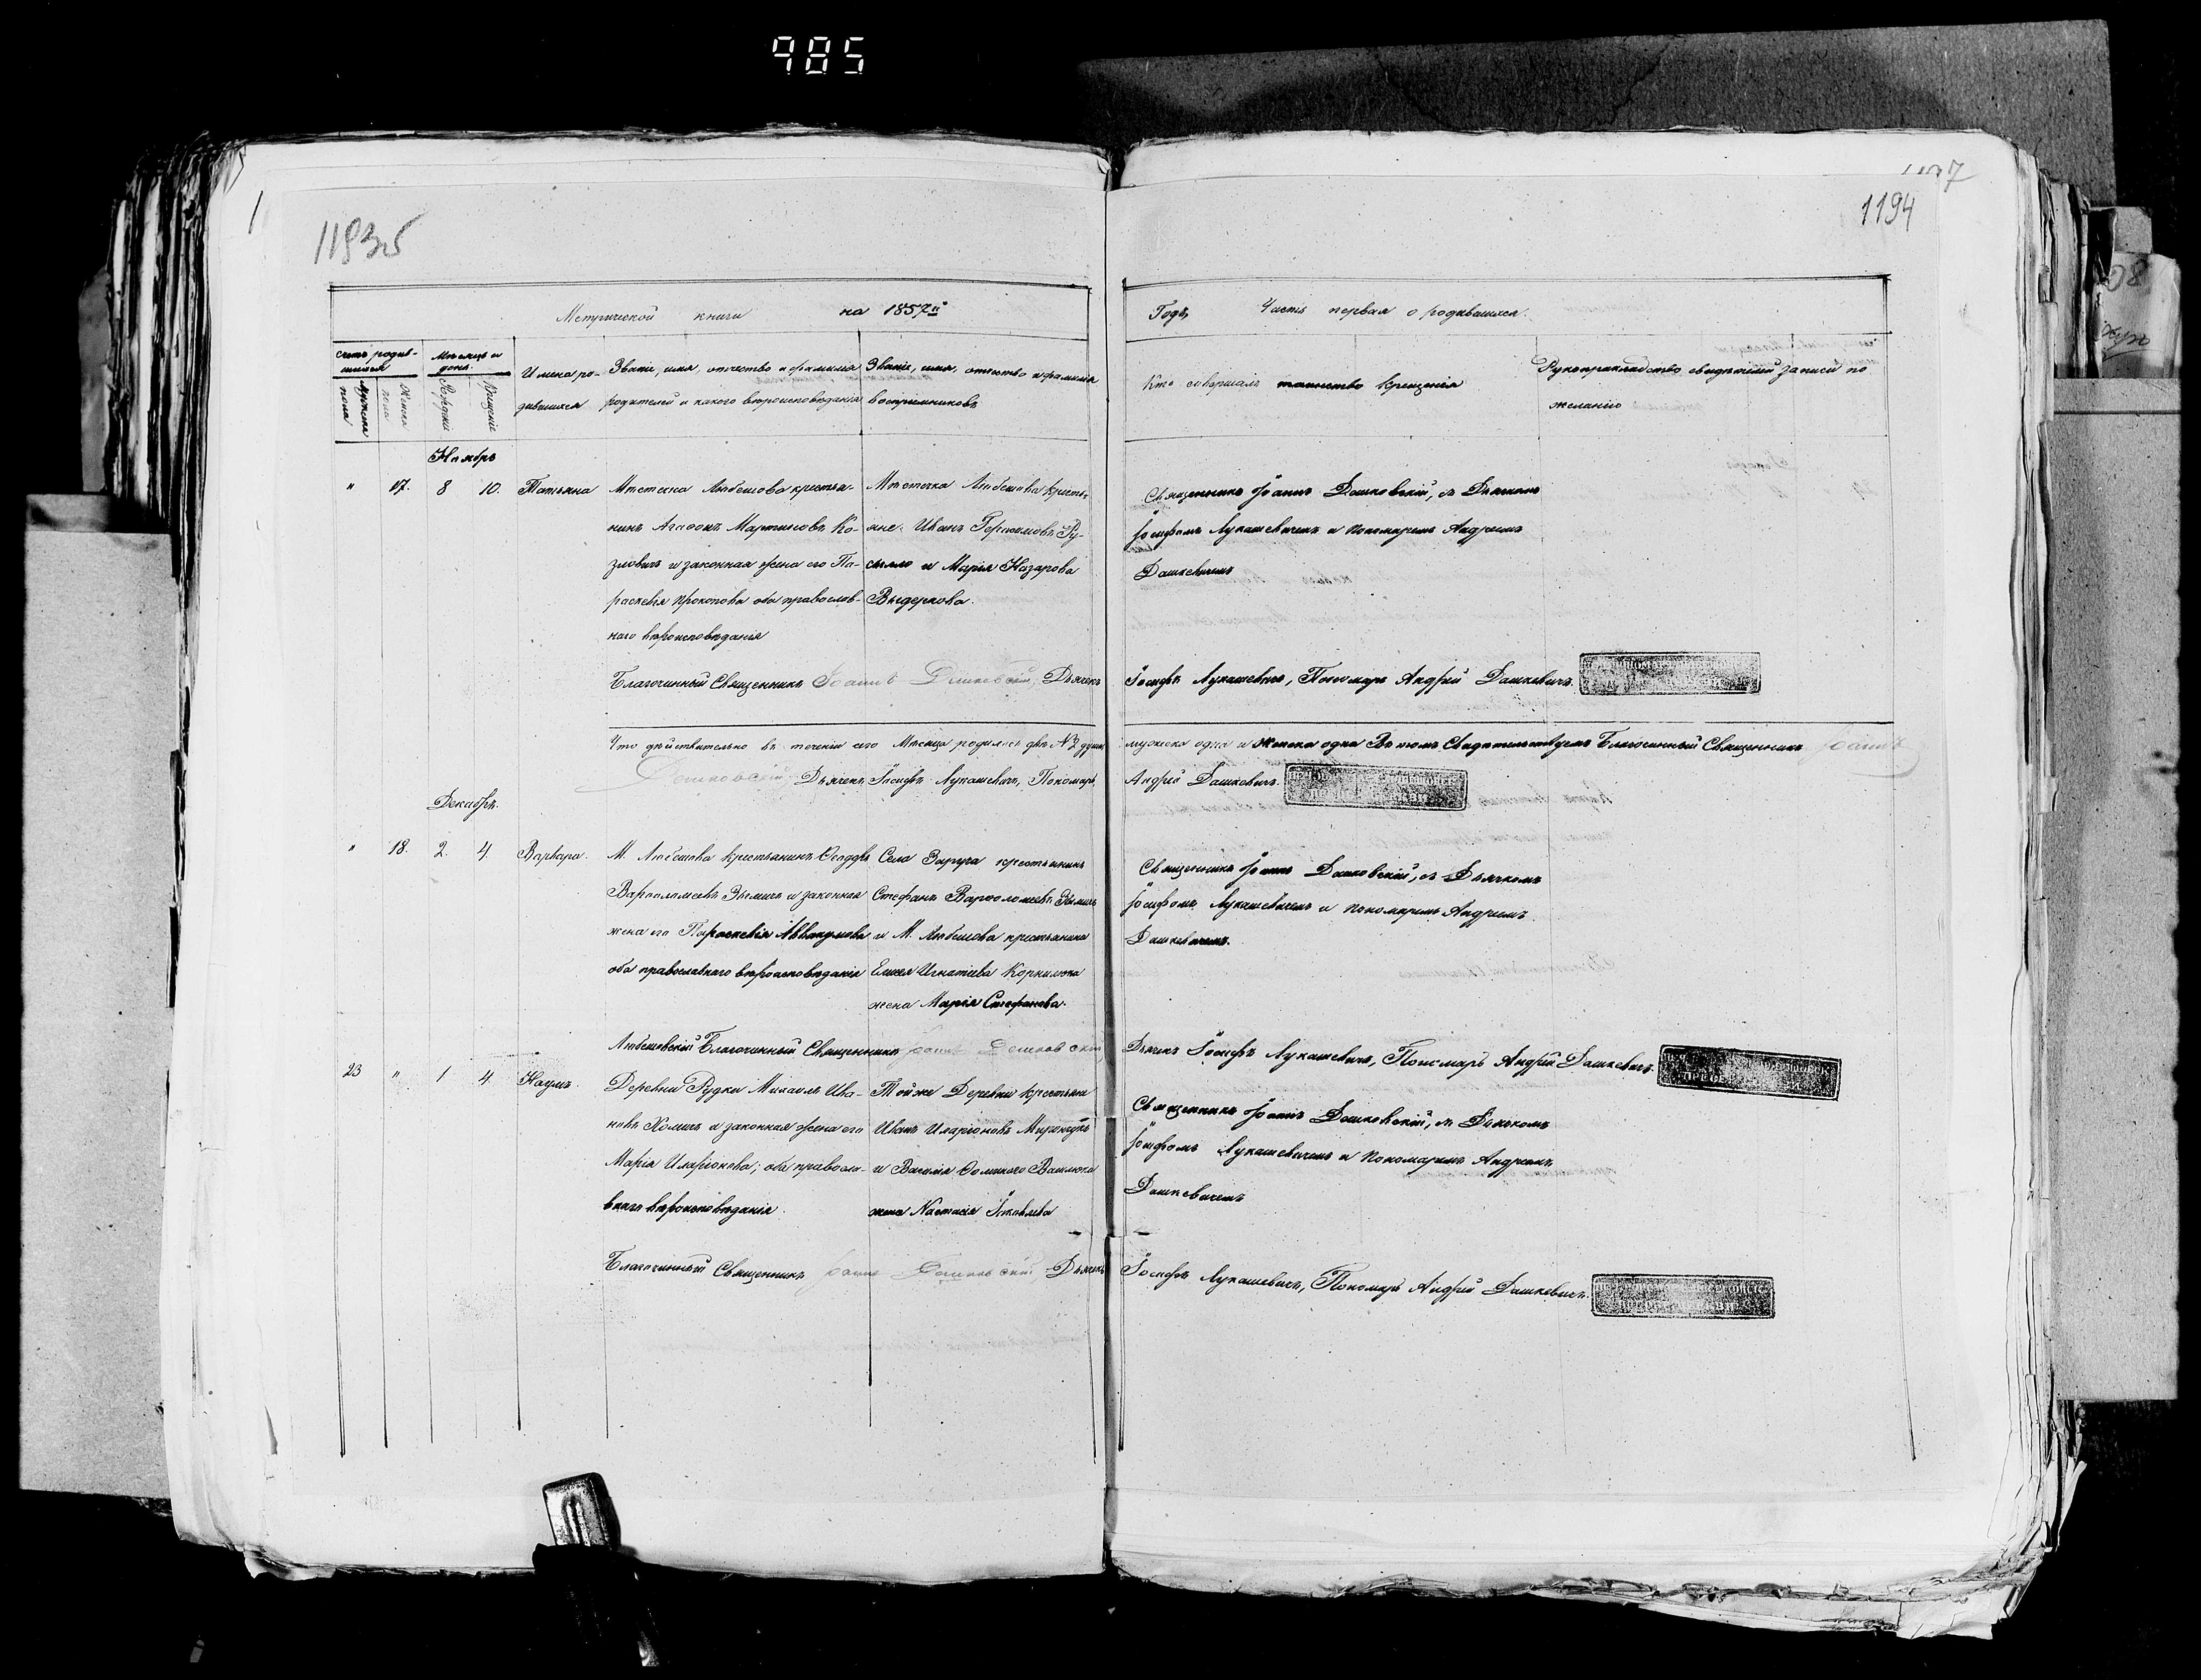 985
1193об
1194
Метрической книги на 1857й
Годъ Часть первая о родившихся.
Счетъ родившихся
Мѣсяцъ и день.
Мужеска пола
Женска пола
Рожденіе
Крещеніе
Имена родившихся
Званіе, имя, отчество и фамилія родителей и какого вѣроисповѣданія
Званіе, имя, отчество и фамилія воспріемниковъ
Кто совершалъ таинство крещенія
Рукоприкладство свидѣтелей записи по желанію
Ноябрь
" 17. 8 10. Татьяна
Мѣстечка Любешова крестья-
нинъ Агафонъ Мартиновъ Ко-
зловичъ и законная жена его Па-
раскевія Прокопова оба православ-
наго вѣроисповѣданія
Мѣстечка Любешова кресть-
яне: Иванъ Герасимовъ
и Марія Назарова
Священникъ Іоаннъ Дашковскій, съ Дьячкомъ
Іосифомъ Лукашевичемъ и Пономаремъ Андреемъ
Дашкевичемъ
Благочинный Священникъ Іоаннъ Дашковскій, Дьячекъ Іосифъ Лукашевичъ, Пономарь Андрей Дашкевичъ.
Что дѣйствительно въ теченіи сего Мѣсяца родилось двѣ №2 души мужска одна и женска одна Въ томъ Свидѣтельствуемъ Благочинный Священникъ Іоаннъ
Дашковскій Дьячекъ Іосифъ Лукашевичъ, Пономарь Андрей Дашкевичъ.
Декабрь.
" 18. 2. 4. Варвара.
М. Любешова крестьянинъ
Варфоломеевъ Зымичъ и законная
жена его Параскевія Аввакумова
оба православнаго вѣроисповѣданія
Села Заруга крестьянинъ
Стефанъ Варфоломеевъ Зымичъ
и М. Любешова крестьянина
Елисея Игнатіева Корнилюка
жена Марія Стефанова.
Священникъ Іоаннъ Дашковскій, съ Дьячкомъ
Іосифомъ Лукашевичемъ и Пономаремъ Андреемъ
Дашкевичемъ.
Любешовскій Благочинный Священникъ Іоаннъ Дашковскій Дьячекъ Іосифъ Лукашевичъ, Пономарь Андрей Дашкевичъ.
23 " 1 4. Наумъ.
Деревни Рудки Михаилъ Ива-
новъ Хомичъ и законная жена его
Марія Иларіонова; оба правосла-
внаго вѣроисповѣданія.
Тойже Деревни крестьяне
Иванъ Иларіоновъ
и Василія Фомина
жена Настасія Яковлева
Священникъ Іоаннъ Дашковскій, съ Дьячкомъ
Іосифомъ Лукашевичемъ и Пономаремъ Андреемъ
Дашкевичемъ
Благочинный Священникъ Іоаннъ Дашковскій Дьячекъ Іосифъ Лукашевичъ, Пономарь Андрей Дашкевичъ.